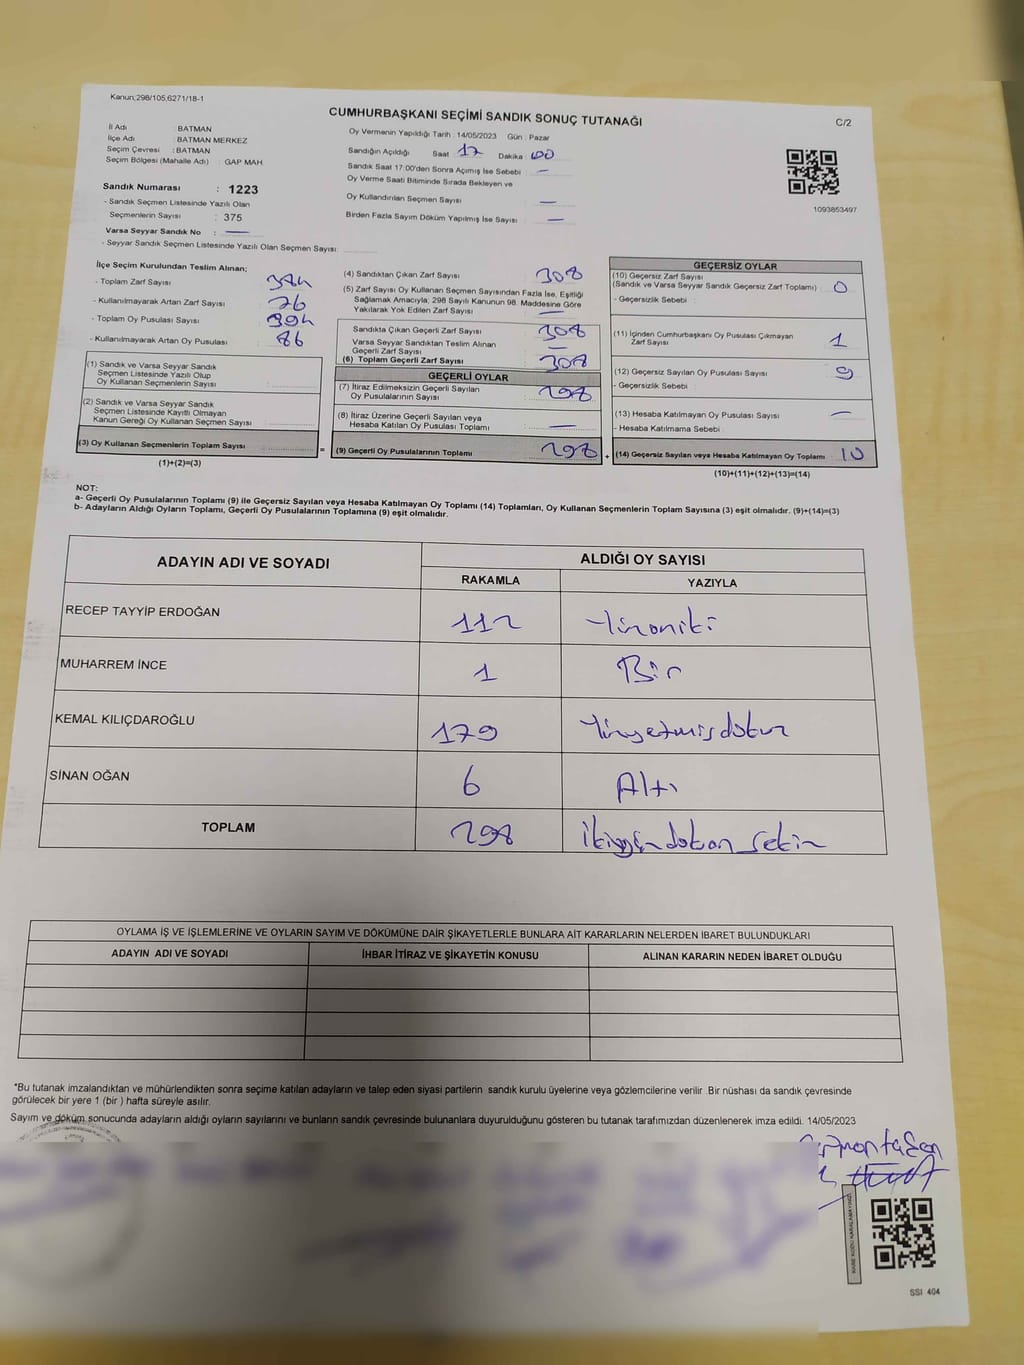 Kanun;298/105,6271/18-1
CUMHURBAŞKANI SEÇİMİ SANDIK SONUÇ TUTANAĞI
C/2
İl Adı : BATMAN
İlçe Adı : BATMAN MERKEZ
Seçim Çevresi : BATMAN
Seçim Bölgesi (Mahalle Adı) : GAP MAH
Sandık Numarası : 1223
- Sandık Seçmen Listesinde Yazılı Olan
Seçmenlerin Sayısı : 375
Varsa Seyyar Sandık No : —
- Seyyar Sandık Seçmen Listesinde Yazılı Olan Seçmen Sayısı:
Oy Vermenin Yapıldığı Tarih : 14/05/2023 Gün : Pazar
Sandığın Açıldığı Saat : 17 Dakika : 00
Sandık Saat 17:00'den Sonra Açımış İse Sebebi : —
Oy Verme Saati Bitiminde Sırada Bekleyen ve
Oy Kullandırılan Seçmen Sayısı : —
Birden Fazla Sayım Döküm Yapılmış İse Sayısı : —
1093853497
İlçe Seçim Kurulundan Teslim Alınan;
- Toplam Zarf Sayısı :
- Kullanılmayarak Artan Zarf Sayısı : 76
- Toplam Oy Pusulası Sayısı : 394
- Kullanılmayarak Artan Oy Pusulası : 86
(1) Sandık ve Varsa Seyyar Sandık
Seçmen Listesinde Yazılı Olup
Oy Kullanan Seçmenlerin Sayısı :
(2) Sandık ve Varsa Seyyar Sandık
Seçmen Listesinde Kayıtlı Olmayan
Kanun Gereği Oy Kullanan Seçmen Sayısı :
(3) Oy Kullanan Seçmenlerin Toplam Sayısı :
(1)+(2)=(3)
(4) Sandıktan Çıkan Zarf Sayısı : 308
(5) Zarf Sayısı Oy Kullanan Seçmen Sayısından Fazla İse, Eşitliği
Sağlamak Amacıyla; 298 Sayılı Kanunun 98. Maddesine Göre
Yakılarak Yok Edilen Zarf Sayısı : —
Sandıkta Çıkan Geçerli Zarf Sayısı : 308
Varsa Seyyar Sandıktan Teslim Alınan
Geçerli Zarf Sayısı : —
(6) Toplam Geçerli Zarf Sayısı : 308
GEÇERLİ OYLAR
(7) İtiraz Edilmeksizin Geçerli Sayılan
Oy Pusulalarının Sayısı : 298
(8) İtiraz Üzerine Geçerli Sayılan veya
Hesaba Katılan Oy Pusulası Toplamı : —
= (9) Geçerli Oy Pusulalarının Toplamı : 298
GEÇERSİZ OYLAR
(10) Geçersiz Zarf Sayısı
(Sandık ve Varsa Seyyar Sandık Geçersiz Zarf Toplamı) : 0
- Geçersizlik Sebebi :
(11) İçinden Cumhurbaşkanı Oy Pusulası Çıkmayan
Zarf Sayısı : 1
(12) Geçersiz Sayılan Oy Pusulası Sayısı : 9
- Geçersizlik Sebebi :
(13) Hesaba Katılmayan Oy Pusulası Sayısı : —
- Hesaba Katılmama Sebebi :
+ (14) Geçersiz Sayılan veya Hesaba Katılmayan Oy Toplamı : 10
(10)+(11)+(12)+(13)=(14)
NOT:
a- Geçerli Oy Pusulalarının Toplamı (9) ile Geçersiz Sayılan veya Hesaba Katılmayan Oy Toplamı (14) Toplamları, Oy Kullanan Seçmenlerin Toplam Sayısına (3) eşit olmalıdır. (9)+(14)=(3)
b- Adayların Aldığı Oyların Toplamı, Geçerli Oy Pusulalarının Toplamına (9) eşit olmalıdır.
ADAYIN ADI VE SOYADI ALDIĞI OY SAYISI
RAKAMLA YAZIYLA
RECEP TAYYİP ERDOĞAN 112 Yüzoniki
MUHARREM İNCE 1 Bir
KEMAL KILIÇDAROĞLU 179 Yüzyetmişdokuz
SİNAN OĞAN 6 Altı
TOPLAM 298 İkiyüzdoksan sekiz
OYLAMA İŞ VE İŞLEMLERİNE VE OYLARIN SAYIM VE DÖKÜMÜNE DAİR ŞİKAYETLERLE BUNLARA AİT KARARLARIN NELERDEN İBARET BULUNDUKLARI
ADAYIN ADI VE SOYADI İHBAR İTİRAZ VE ŞİKAYETİN KONUSU ALINAN KARARIN NEDEN İBARET OLDUĞU
*Bu tutanak imzalandıktan ve mühürlendikten sonra seçime katılan adayların ve talep eden siyasi partilerin sandık kurulu üyelerine veya gözlemcilerine verilir Bir nüshası da sandık çevresinde
görülecek bir yere 1 (bir ) hafta süreyle asılır.
Sayım ve döküm sonucunda adayların aldığı oyların sayılarını ve bunların sandık çevresinde bulunanlara duyurulduğunu gösteren bu tutanak tarafımızdan düzenlenerek imza edildi. 14/05/2023
SSI 404